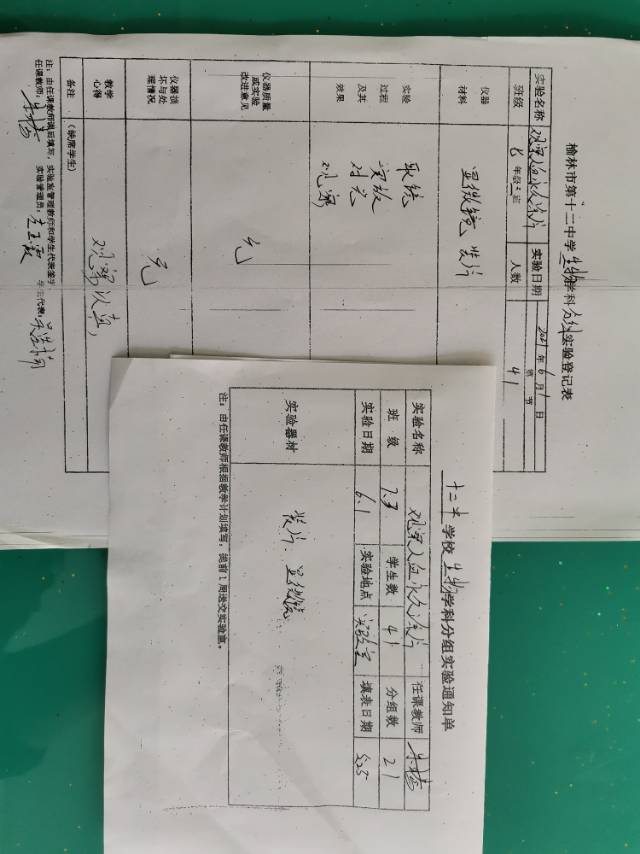 榆林市第十二中学生物学科分组实验登记表
实验名称 观察人血永久涂片 实验日期 2021年6月1日
班级 七年级3班 人数 41
第 节
仪器材料 显微镜 装片
实验过程及其效果
取镜
安放
对光
观察
仪器质量或实验改进意见 无
仪器损坏与处理情况 无
教学心得 观察认真,
备注 (缺席学生)
注:由任课教师课后填写,实验室管理教师和学生代表签字
任课教师: 实验管理员: 学生代表:
十二中学校生物学科分组实验通知单
实验名称 观察人血永久涂片 任课教师
班级 7.3 学生数 41 分组数 21
实验日期 6.1 实验地点 实验室 填表日期 5.25
实验器材 装片、显微镜
注:由任课教师根据教学计划填写,提前1周送交实验室。